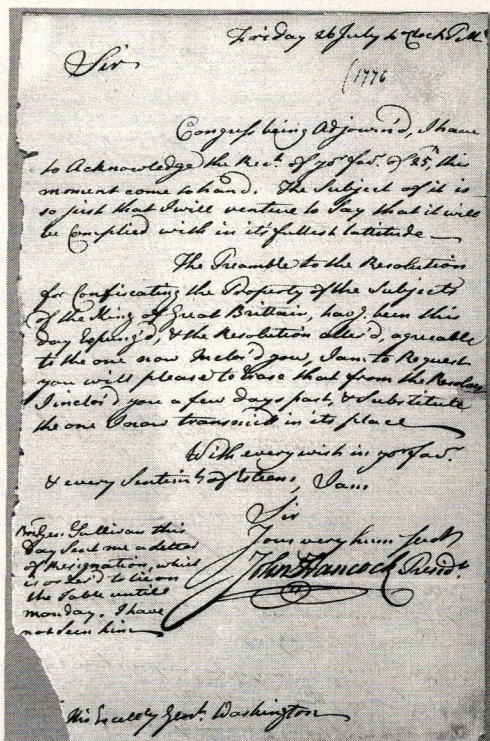 Friday 26 July 4 oClock P.M.
(1776
Sir
Congress being Adjourn'd, I have
to Acknowledge the Rect. of yor. favr. of 25th, this
moment come to hand. The Subject of it is
so just that I will venture to Say that it will
be Complied with in its fullest latitude
The Preamble to the Resolution
for Confiscating the Property of the Subjects
of the King of Great Brittain, having been this
day Expung'd, & the Resolution alter'd, agreable
to the one now Inclos'd you, I am to Request
you will please to Erase that from the Resolves
I inclos'd you a few days past, & Substitute
the one I now transmit in its place
With every wish in yor. favr.
& every Sentimt. of Esteem, I am
Sir
Your very hum Sert
John Hancock Presidt.
Sullivan this
Day Sent me a letter
of Resignation, which
is order'd to lie on
the Table until
monday. I have
not seen him
His Excelly Genl. Washington